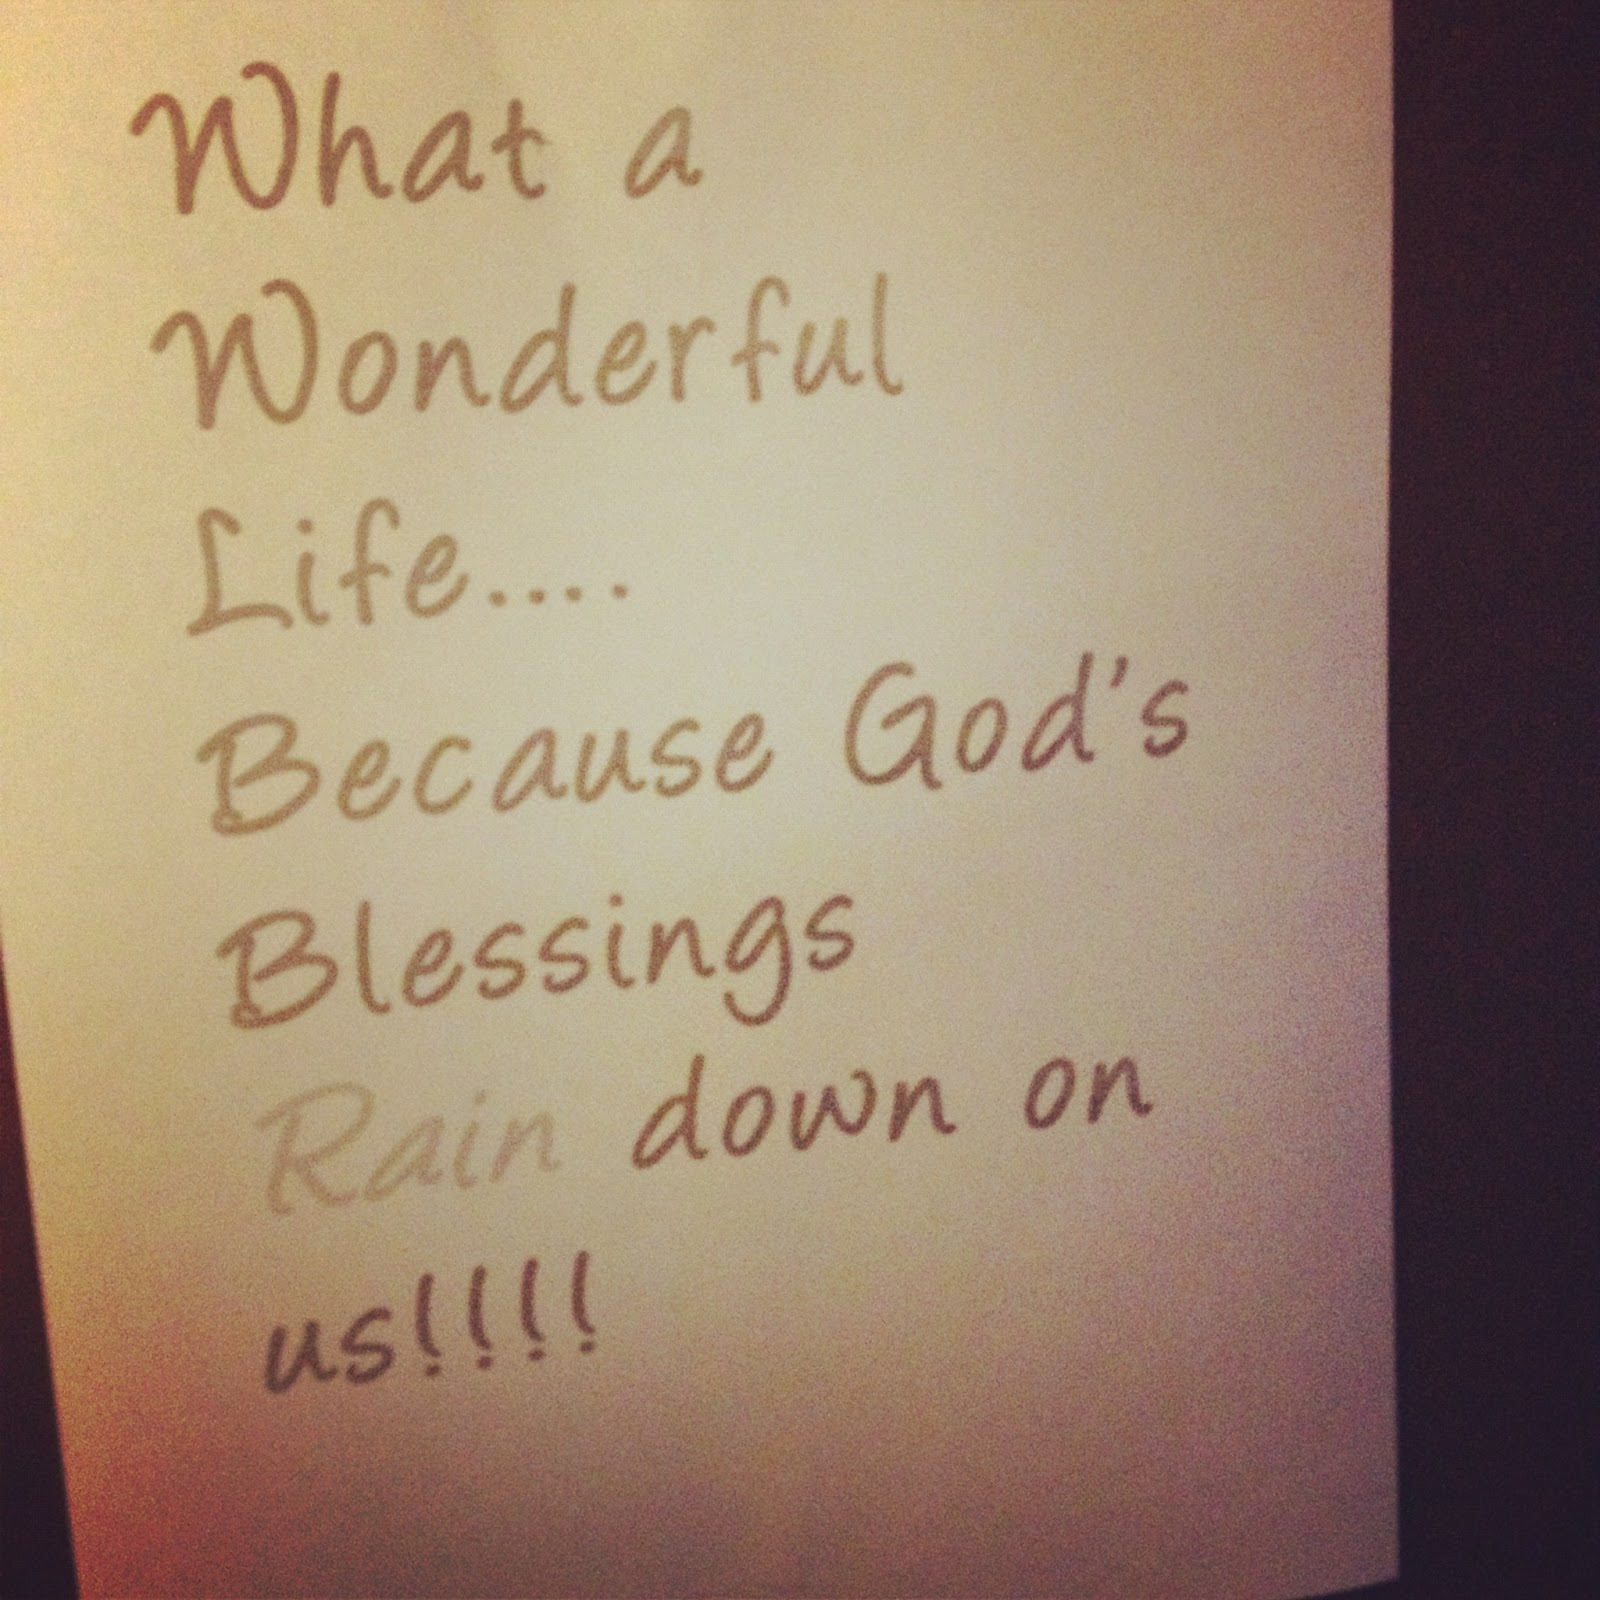 What a
Wonderful
Life....
Because God's
Blessings
Rain down on
us!!!!